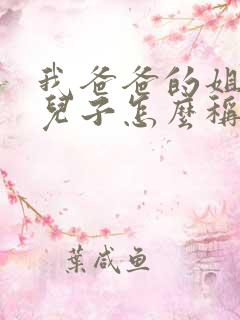 我爸爸的姐
兒子怎麼稱
葉咸鱼